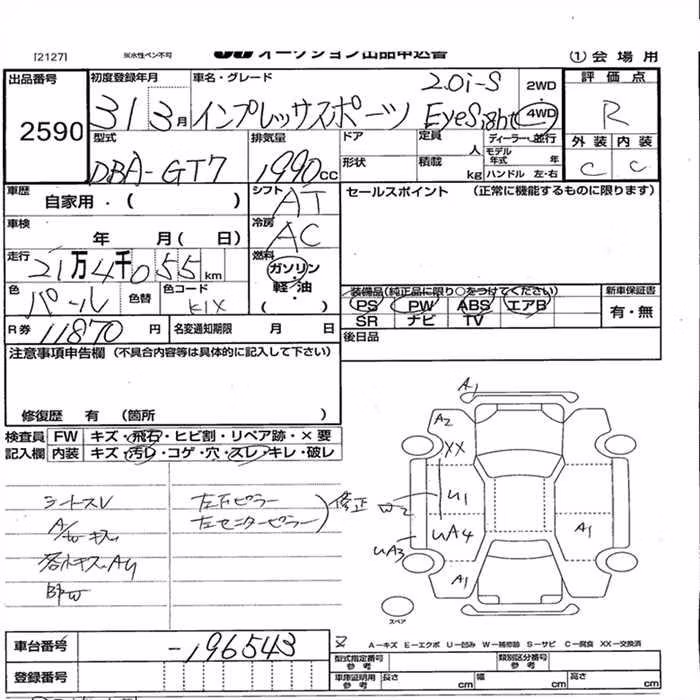 [2127] 油水性ペン不可 オークション出品申込書 ① 会 場 用
出品番号 初度登録年月 車名・グレード 2.0i-S 2WD 評 価 点
2590 31 3月 インプレッサスポーツ EyeSight 4WD R
型式 排気量 ドア 定員 人 ディーラー・並行 外 装 内 装
DBA-GT7 1990cc 形状 積載 kg モデル年式 年 ハンドル 左・右 C C
車歴 自家用・( ) シフト AT セールスポイント (正常に機能するものに限ります)
車検 年 月( 日) 冷房 AC
走行 21万4千055km 燃料 ガソリン・軽・油 ( )
色 パール 色替 色コード K1X 装備品(純正品に限り○をつけてください) 新車保証書
PS PW ABS エアB 有・無
SR ナビ TV
R券 11870 円 名変通知期限 月 日 後日品
注意事項申告欄 (不具合内容等は具体的に記入して下さい)
修復歴 有 (箇所 )
検査員 FW キズ・飛石・ヒビ割・リペア跡・×要
記入欄 内装 キズ・汚レ・コゲ・穴・スレ・キレ・破レ
シートスレ 左Fピラー
左センターピラー 修正
A1
A2
XX
U1 W2
UA4 A1
UA3
A1
スペア
車台番号 -196543
A－キズ E－エクボ U－凹み W－補修跡 S－サビ C－腐食 XX－交換済
登録番号 型式指定番号 参考 類別区分番号 参考
車庫証明用 参考 長さ cm 幅 cm 高さ cm